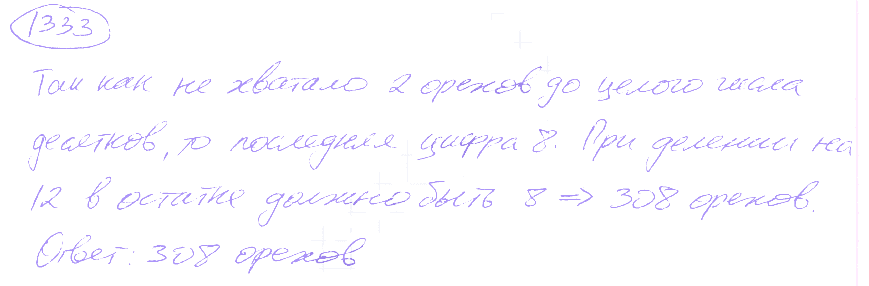 1333
Так как не хватало 2 орехов до целого числа
десятков, то последняя цифра 8. При делении на
12 в остатке должно быть 8 => 308 орехов.
Ответ: 308 орехов